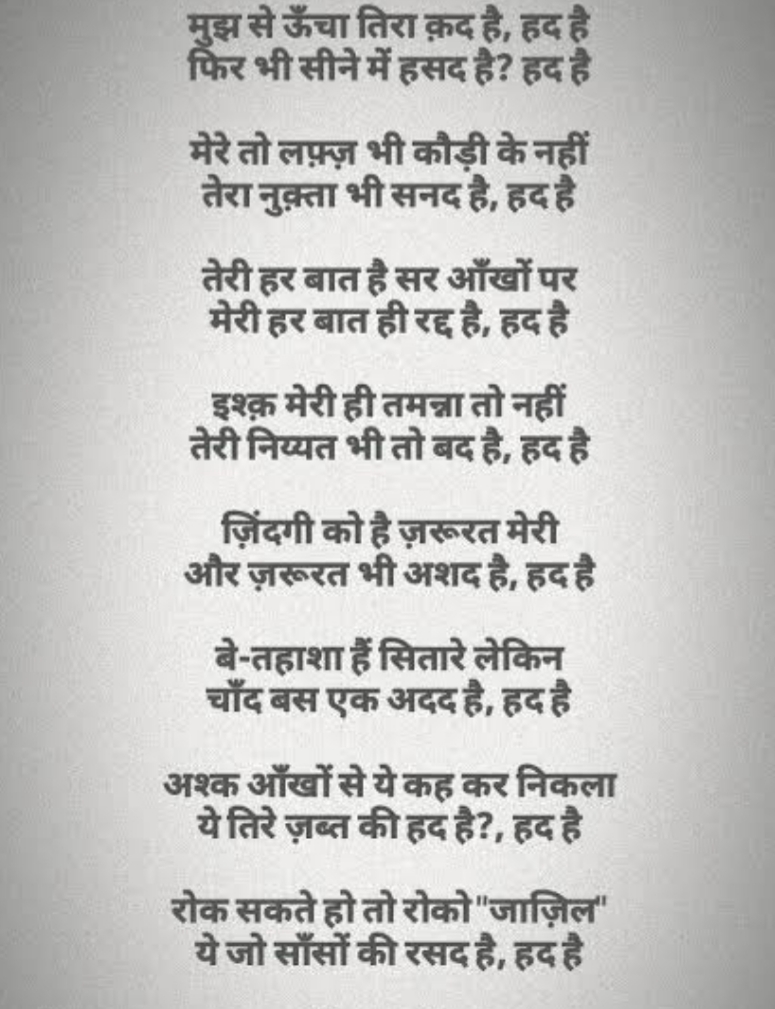 मुझ से ऊँचा तिरा क़द है, हद है
फिर भी सीने में हसद है? हद है
मेरे तो लफ़्ज़ भी कौड़ी के नहीं
तेरा नुक़्ता भी सनद है, हद है
तेरी हर बात है सर आँखों पर
मेरी हर बात ही रद्द है, हद है
इश्क़ मेरी ही तमन्ना तो नहीं
तेरी निय्यत भी तो बद है, हद है
ज़िंदगी को है ज़रूरत मेरी
और ज़रूरत भी अशद है, हद है
बे-तहाशा हैं सितारे लेकिन
चाँद बस एक अदद है, हद है
अश्क आँखों से ये कह कर निकला
ये तिरे ज़ब्त की हद है?, हद है
रोक सकते हो तो रोको "जाज़िल"
ये जो साँसों की रसद है, हद है